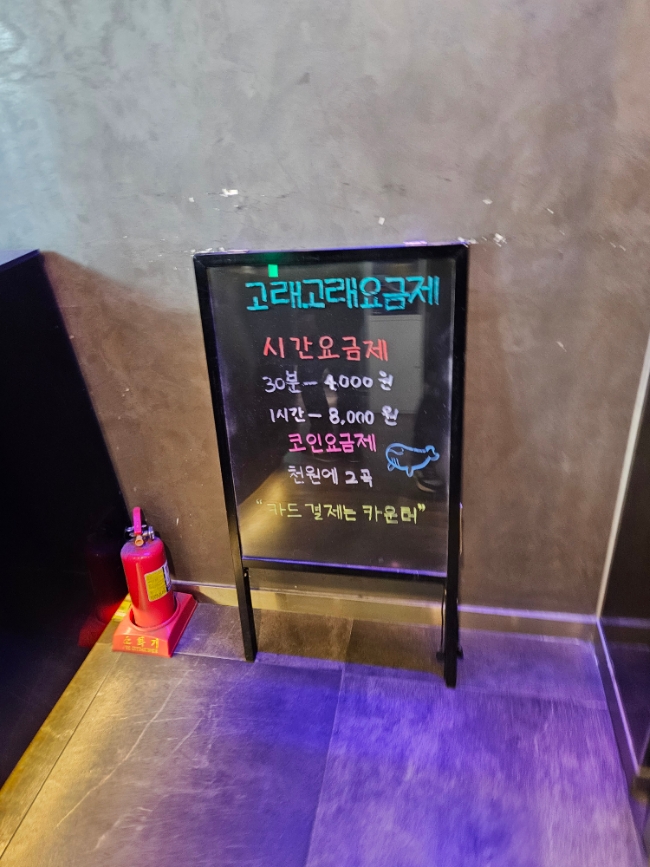 고래고래요금제
시간요금제
30분 - 4,000 원
1시간 - 8,000 원
코인요금제
천원에 2곡
"카드 결제는 카운터"
소화기